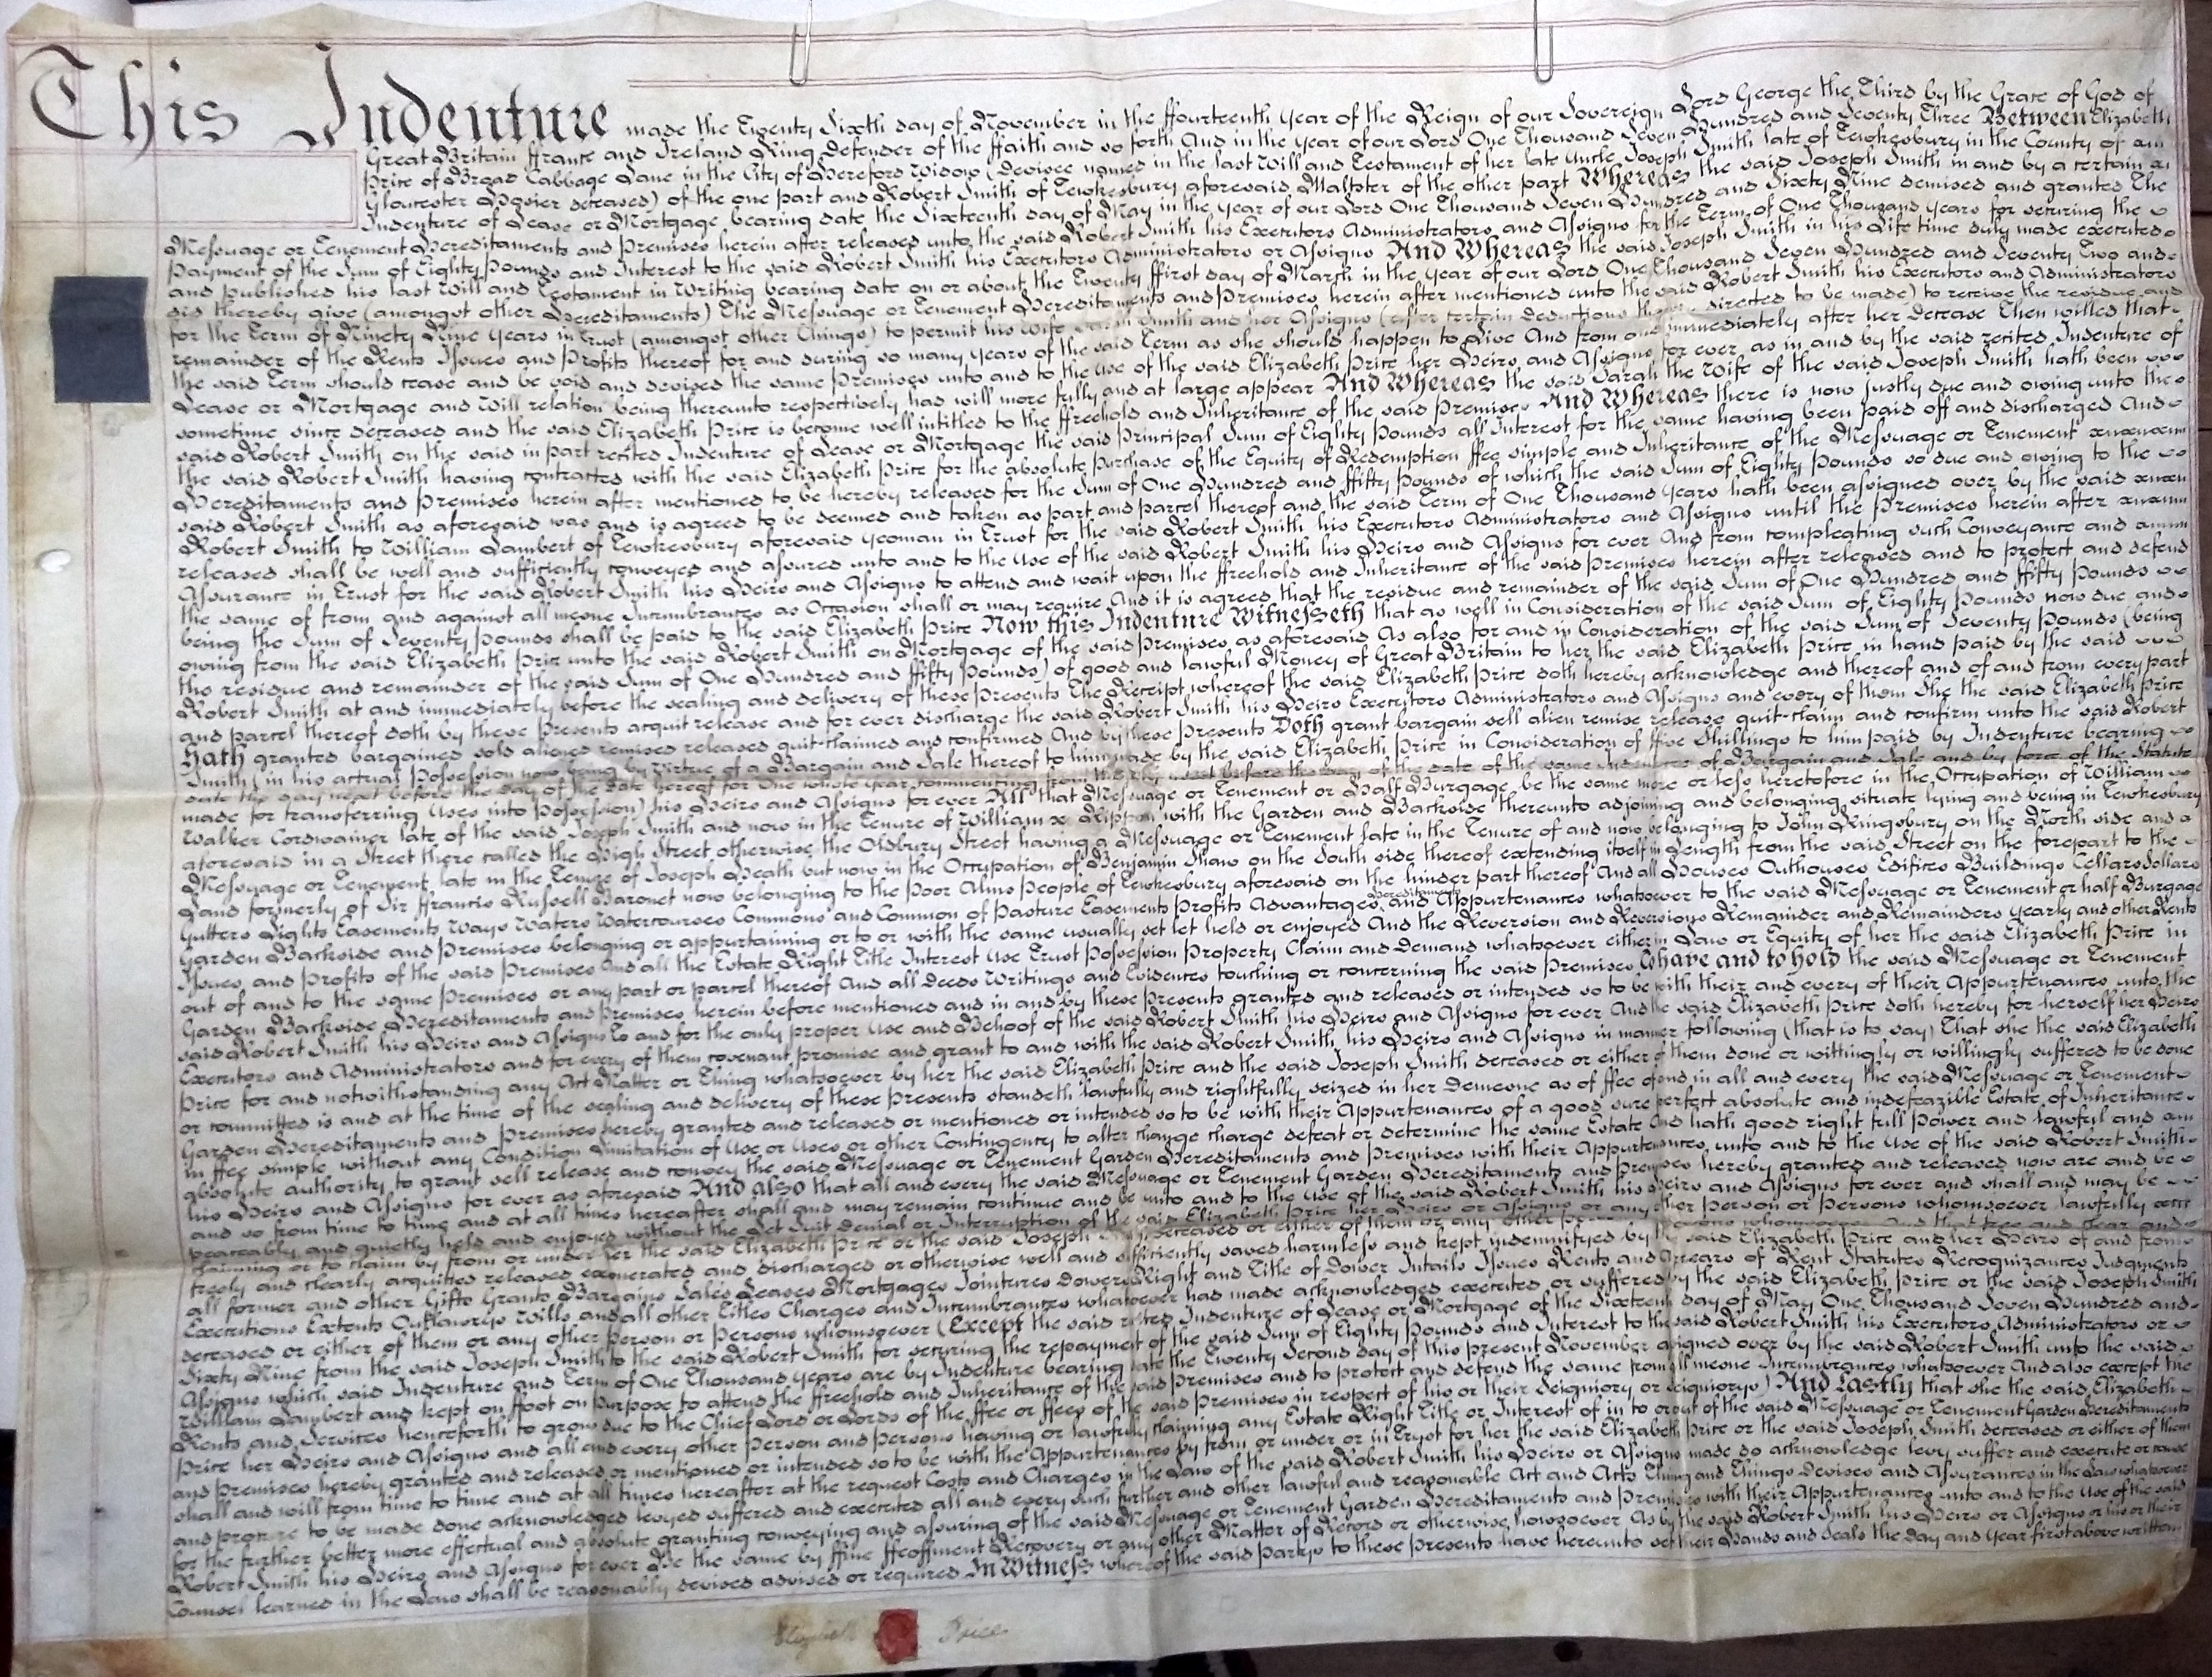 This Indenture made the Twenty Sixth day of November in the ffourteenth Year of the Reign of our Sovereign Lord George the Third by the Grace of God of
Great Britain ffrance and Ireland King Defender of the ffaith and so forth And in the year of our Lord One Thousand Seven Hundred and Seventy Three Between Elizabeth
Price of Broad Cabbage Lane in the City of Hereford Widow (Devisee named in the last Will and Testament of her late Uncle Joseph Smith late of Tewkesbury in the County of
Gloucester Hosier deceased) of the one part and Robert Smith of Tewkesbury aforesaid Maltster of the other part Whereas the said Joseph Smith in and by a certain
Indenture of Lease or Mortgage bearing date the Sixteenth day of May in the year of our Lord One Thousand Seven Hundred and Sixty Nine demised and granted The
Messuage or Tenement Hereditaments and Premises herein after released unto the said Robert Smith his Executors Administrators and Assigns for the Term of One Thousand years for securing the
payment of the Sum of Eighty Pounds and Interest to the said Robert Smith his Executors Administrators or Assigns And Whereas the said Joseph Smith in his Life time duly made executed
and published his last Will and Testament in Writing bearing date on or about the Twenty ffirst day of March in the Year of our Lord One Thousand Seven Hundred and Seventy Two and
did thereby give (amongst other Hereditaments) The Messuage or Tenement Hereditaments and Premises herein after mentioned unto the said Robert Smith his Executors and Administrators
for the Term of Ninety Nine Years in Trust (amongst other Things) to permit his Wife Smith and her Assigns (after certain deductions directed to be made) to receive the residue and
remainder of the Rents Issues and Profits thereof for and during so many years of the said Term as she should happen to Live And from and immediately after her decease Then willed that
the said Term should cease and be void and devised the same Premises unto and to the Use of the said Elizabeth Price her Heirs and Assigns for ever as in and by the said recited Indenture of
Lease or Mortgage and Will relation being thereunto respectively had will more fully and at large appear And Whereas the said Sarah the Wife of the said Joseph Smith hath been
sometime since deceased and the said Elizabeth Price is become well intitled to the ffreehold and Inheritance of the said Premises And Whereas there is now justly due and owing unto the
said Robert Smith on the said in part recited Indenture of Lease or Mortgage the said Principal Sum of Eighty Pounds all Interest for the same having been paid off and discharged And
the said Robert Smith having contracted with the said Elizabeth Price for the absolute Purchase of the Equity of Redemption ffee simple and Inheritance of the Messuage or Tenement
Hereditaments and Premises herein after mentioned to be hereby released for the Sum of One Hundred and ffifty Pounds of which the said Sum of Eighty Pounds so due and owing to the
said Robert Smith as aforesaid was and is agreed to be deemed and taken as part and parcel thereof and the said Term of One Thousand years hath been assigned over by the said
Robert Smith to William Lambert of Tewkesbury aforesaid Yeoman in Trust for the said Robert Smith his Executors Administrators and Assigns until the Premises herein after
released shall be well and sufficiently conveyed and assured unto and to the Use of the said Robert Smith his Heirs and Assigns for ever And from compleating such Conveyance and
Assurance in Trust for the said Robert Smith his Heirs and Assigns to attend and wait upon the ffreehold and Inheritance of the said Premises herein after released and to protect and defend
the same of from and against all mesne Incumbrances as Occasion shall or may require And it is agreed that the residue and remainder of the said Sum of One Hundred and ffifty Pounds
being the Sum of Seventy Pounds shall be paid to the said Elizabeth Price Now this Indenture Witnesseth that as well in Consideration of the said Sum of Eighty Pounds now due and
owing from the said Elizabeth Price unto the said Robert Smith on Mortgage of the said Premises as aforesaid As also for and in Consideration of the said Sum of Seventy Pounds (being
the residue and remainder of the said Sum of One Hundred and ffifty Pounds) of good and lawful Money of Great Britain to her the said Elizabeth Price in hand paid by the said
Robert Smith at and immediately before the sealing and delivery of these Presents The Receipt whereof the said Elizabeth Price doth hereby acknowledge and thereof and of and from every part
and parcel thereof doth by these Presents acquit release and for ever discharge the said Robert Smith his Heirs Executors Administrators and Assigns and every of them She the said Elizabeth Price
Hath granted bargained sold aliened remised released quit-claimed and confirmed And by these Presents Doth grant bargain sell alien remise release quit-claim and confirm unto the said Robert
Smith (in his actual Possession now being by Virtue of a Bargain and Sale thereof to him made by the said Elizabeth Price in Consideration of ffive Shillings to him paid by Indenture bearing
date the day next before the day of the date hereof for One whole year commencing from the day next before the day of the date of the same Indenture of Bargain and Sale and by force of the Statute
made for transferring Uses into Possession) his Heirs and Assigns for ever All that Messuage or Tenement or Half Burgage be the same more or less heretofore in the Occupation of William
Walker Cordwainer late of the said Joseph Smith and now in the Tenure of William Rippon with the Garden and Backside thereunto adjoining and belonging situate lying and being in Tewkesbury
aforesaid in a Street there called the High Street otherwise the Oldbury Street having a Messuage or Tenement late in the Tenure of and now belonging to John Kingsbury on the North side and a
Messuage or Tenement late in the Tenure of Joseph Heath but now in the Occupation of Benjamin Shaw on the South side thereof extending itself in Length from the said Street on the forepart to the
Land formerly of Sir ffrancis Russell Baronet now belonging to the Poor Alms People of Tewkesbury aforesaid on the hinder part thereof And all Houses Outhouses Edifices Buildings Cellars Sollars
Gutters Lights Easements Ways Waters Watercourses Commons and Common of Pasture Easements Profits Advantages Hereditaments and Appurtenances whatsoever to the said Messuage or Tenement or half Burgage
Garden Backside and Premises belonging or appurtaining or to or with the same usually set let held or enjoyed And the Reversion and Reversions Remainder and Remainders yearly and other Rents
Issues and Profits of the said Premises And all the Estate Right Title Interest Use Trust Possession Property Claim and Demand whatsoever either in Law or Equity of her the said Elizabeth Price in
out of and to the same Premises or any part or parcel thereof And all Deeds Writings and Evidences touching or concerning the said Premises To have and to hold the said Messuage or Tenement
Garden Backside Hereditaments and Premises herein before mentioned and in and by these Presents granted and released or intended so to be with their and every of their Appurtenances unto the
said Robert Smith his Heirs and Assigns To and for the only proper Use and Behoof of the said Robert Smith his Heirs and Assigns for ever And the said Elizabeth Price doth hereby for herself her Heirs
Executors and Administrators and for every of them covenant promise and grant to and with the said Robert Smith his Heirs and Assigns in manner following (that is to say) That she the said Elizabeth
Price for and notwithstanding any Act Matter or Thing whatsoever by her the said Elizabeth Price and the said Joseph Smith deceased or either of them done or wittingly or willingly suffered to be done
or committed is and at the time of the sealing and delivery of these Presents standeth lawfully and rightfully seized in her Demesne as of ffee of and in all and every the said Messuage or Tenement
Garden Hereditaments and Premises hereby granted and released or mentioned or intended so to be with their Appurtenances of a good sure perfect absolute and indefeazible Estate of Inheritance
in ffee simple without any Condition Limitation of Use or Uses or other Contingency to alter change charge defeat or determine the same Estate And hath good right full Power and lawful and
absolute authority to grant sell release and convey the said Messuage or Tenement Garden Hereditaments and Premises with their Appurtenances unto and to the Use of the said Robert Smith
his Heirs and Assigns for ever as aforesaid And also that all and every the said Messuage or Tenement Garden Hereditaments and Premises hereby granted and released now are and be
and so from time to time and at all times hereafter shall and may remain continue and be unto and to the Use of the said Robert Smith his Heirs and Assigns for ever and shall and may be
peaceably and quietly held and enjoyed without the Let Suit Denial or Interruption of the said Elizabeth Price her Heirs or Assigns or any other Person or Persons whomsoever lawfully
claiming or to claim by from or under her the said Elizabeth Price or the said Joseph deceased or either of them or any other And that free and clear and
freely and clearly acquitted released exonerated and discharged or otherwise well and sufficiently saved harmless and kept indemnifyed by the said Elizabeth Price and her Heirs of and from
all former and other Gifts Grants Bargains Sales Leases Mortgages Jointures Dowers Right and Title of Dower Intails Issues Rents and Arrears of Rent Statutes Recognizances Judgments
Executions Extents Outlawrys Wills and all other Titles Charges and Incumbrances whatsoever had made acknowledged executed or suffered by the said Elizabeth Price or the said Joseph Smith
deceased or either of them or any other Person or Persons whomsoever (Except the said recited Indenture of Lease or Mortgage of the Sixteenth day of May One Thousand Seven Hundred and
Sixty Nine from the said Joseph Smith to the said Robert Smith for securing the repayment of the said Sum of Eighty Pounds and Interest to the said Robert Smith his Executors Administrators or
Assigns which said Indenture and Term of One Thousand years are by Indenture bearing date the Twenty Second day of this present November assigned over by the said Robert Smith unto the said
William Lambert and kept on foot on Purpose to attend the ffreehold and Inheritance of the said Premises and to protect and defend the same from all mesne Incumbrances whatsoever And also except the
Rents and Services henceforth to grow due to the Chief Lord or Lords of the ffee or ffees of the said Premises in respect of his or their Seigniory or Seigniorys) And Lastly that she the said Elizabeth
Price her Heirs and Assigns and all and every other Person and Persons having or lawfully claiming any Estate Right Title or Interest of in to or out of the said Messuage or Tenement Garden Hereditaments
and Premises hereby granted and released or mentioned or intended so to be with the Appurtenances by from or under or in Trust for her the said Elizabeth Price or the said Joseph Smith deceased or either of them
shall and will from time to time and at all times hereafter at the request Costs and Charges in the Law of the said Robert Smith his Heirs or Assigns made do acknowledge levy suffer and execute or cause
and procure to be made done acknowledged levyed suffered and executed all and every such further and other lawful and reasonable Act and Acts Thing and Things Devises and Assurances in the Law whatsoever
for the further better more effectual and absolute granting conveying and assuring of the said Messuage or Tenement Garden Hereditaments and Premises with their Appurtenances unto and to the Use of the said
Robert Smith his Heirs and Assigns for ever Be the same by ffine ffeoffment Recovery or any other Matter of Record or otherwise howsoever As by the said Robert Smith his Heirs or Assigns or his or their
Counsel learned in the Law shall be reasonably devised advised or required In Witness whereof the said Partys to these Presents have hereunto set their Hands and Seals the Day and Year first above written
Elizabeth Price